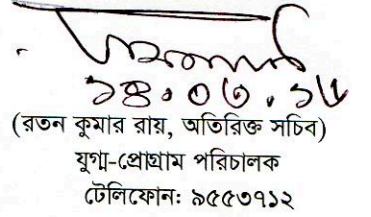 ১৪.০৩.১৮
(রতন কুমার রায়, অতিরিক্ত সচিব)
যুগ্ম-প্রোগ্রাম পরিচালক
টেলিফোন: ৯৫৫৩৭১২